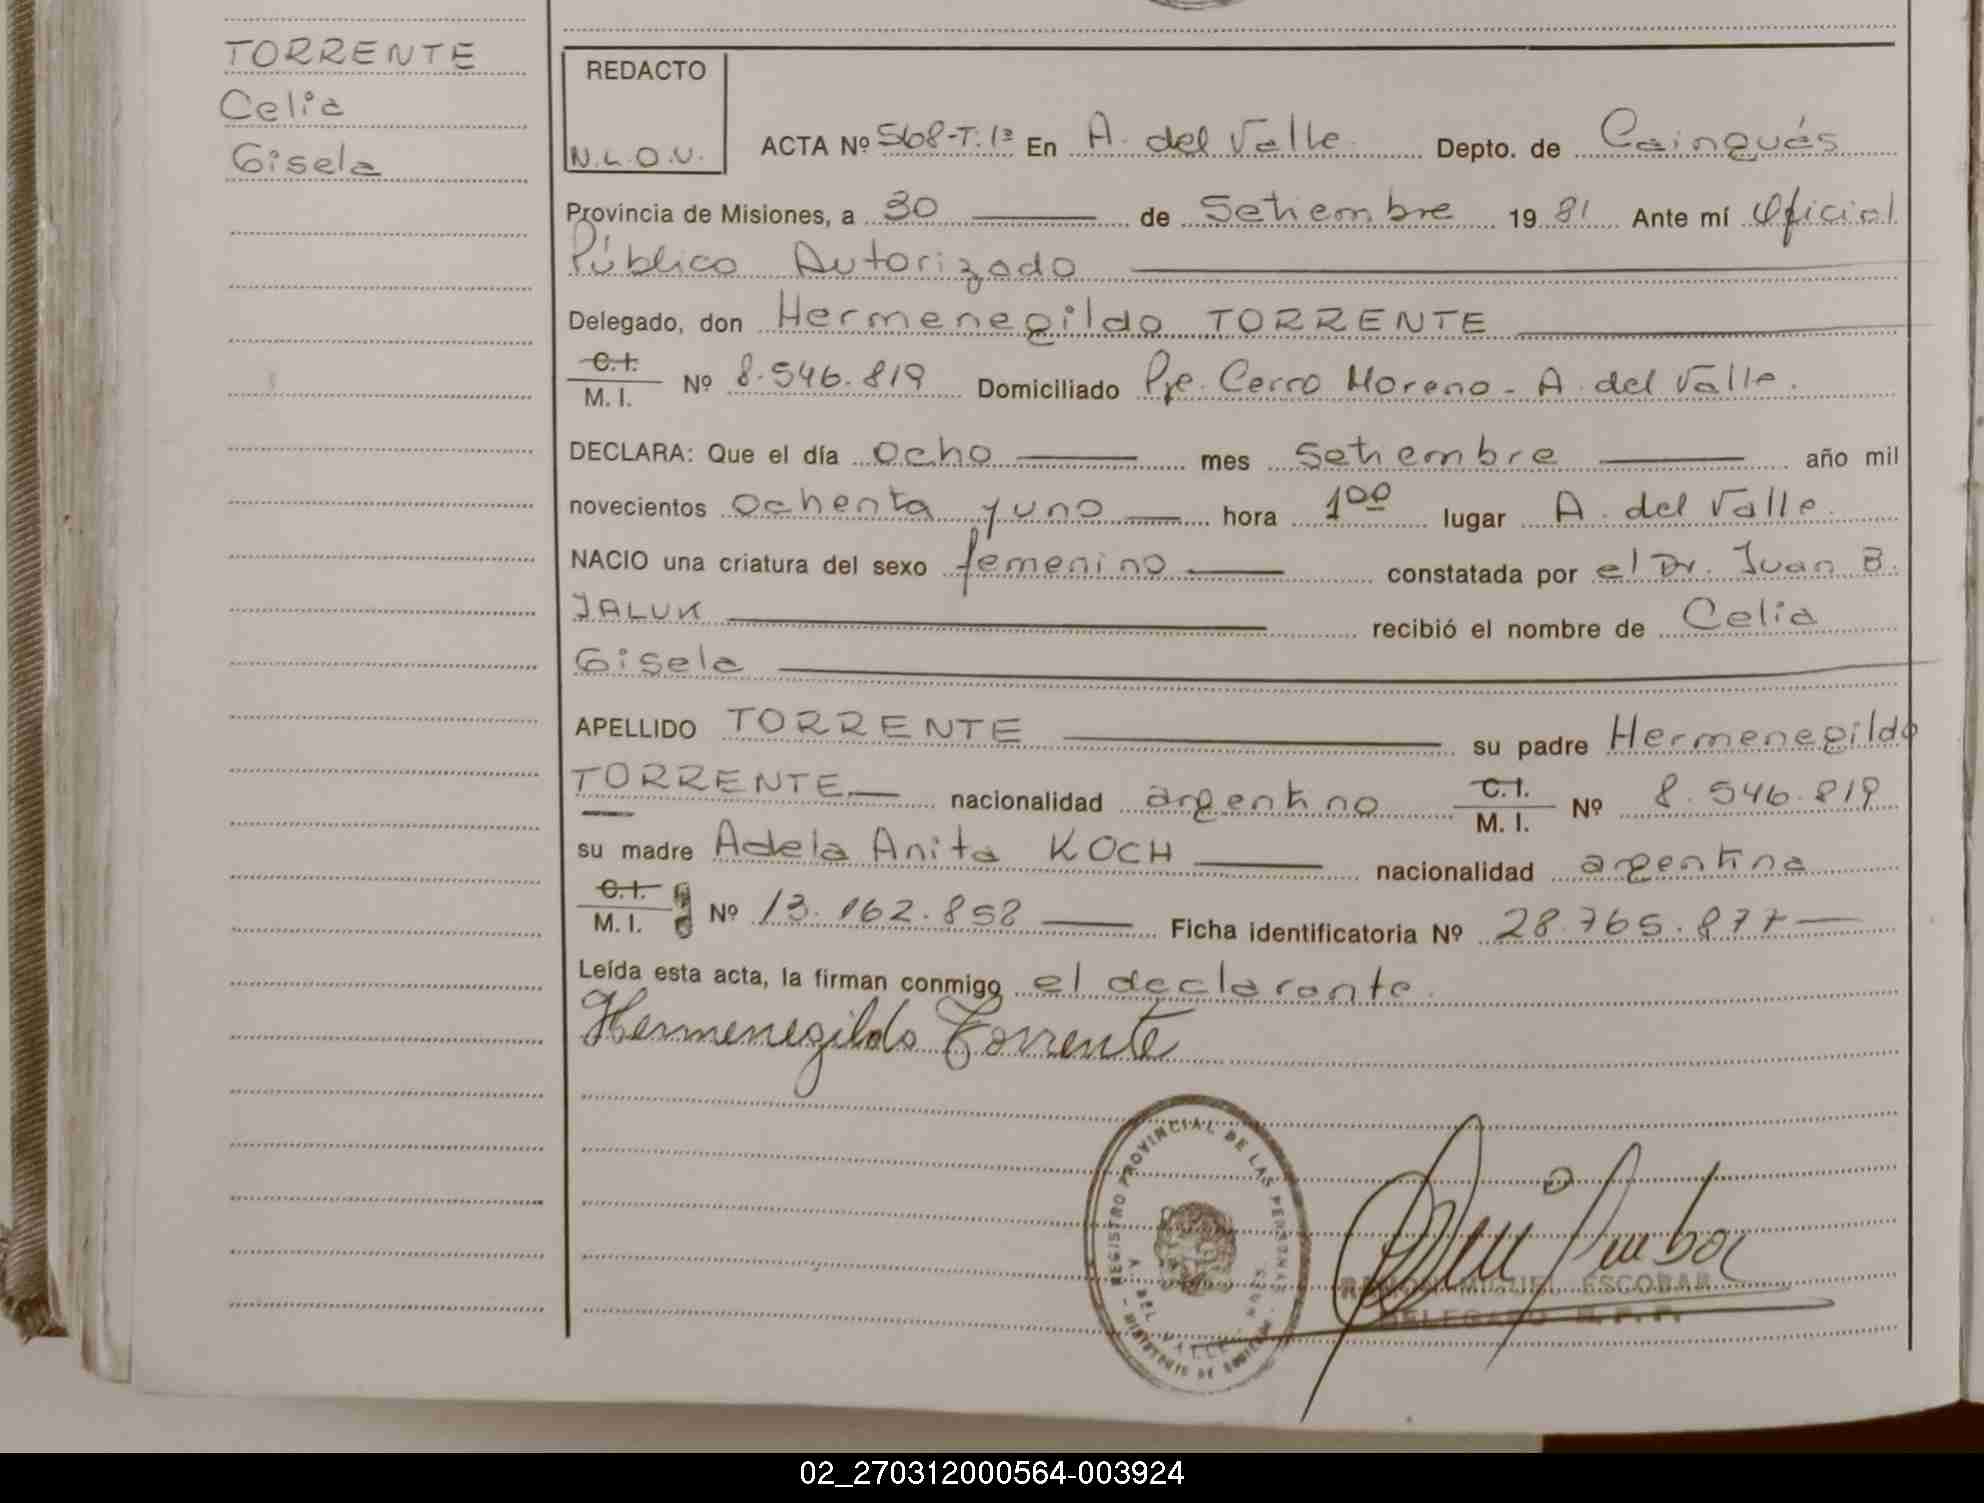 TORRENTE
Celia
Gisela
REDACTO
N.L.O.V.
ACTA Nº 568-T.1º En A. del Valle Depto. de Cainguás
Provincia de Misiones, a 30 de Setiembre 1981 Ante mí Oficial
Público Autorizado
Delegado, don Hermenegildo TORRENTE
C.I.
M.I. Nº 8.546.819 Domiciliado Pje. Cerro Moreno - A. del Valle.
DECLARA: Que el día ocho mes Setiembre año mil
novecientos ochenta y uno hora 1⁰⁰ lugar A. del Valle.
NACIO una criatura del sexo femenino constatada por el Dr. Juan B.
JALUK recibió el nombre de Celia
Gisela
APELLIDO TORRENTE su padre Hermenegildo
TORRENTE nacionalidad argentino C.I. M.I. Nº 8.546.819
su madre Adela Anita KOCH nacionalidad argentina
C.I.
M.I. Nº 13.162.852 Ficha identificatoria Nº 28.765.877
Leída esta acta, la firman conmigo el declarante.
Hermenegildo Torrente
REGISTRO PROVINCIAL DE LAS PERSONAS
A. DEL VALLE
RAMON MIGUEL ESCOBAR
DELEGADO R.P.P.
02_270312000564-003924